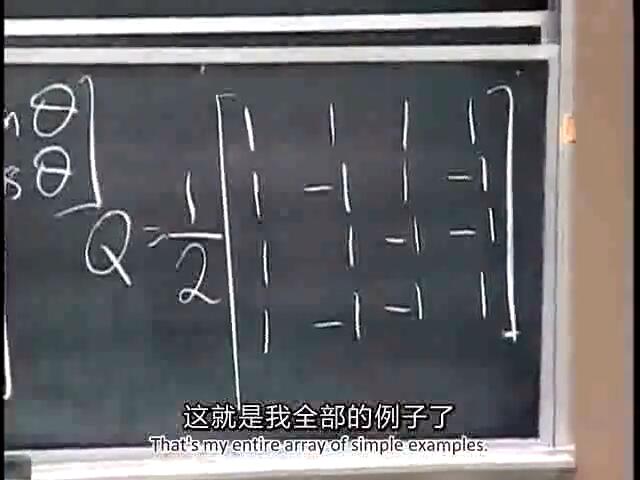 n θ
s θ
Q = 1/2
1 1 1 1
1 -1 1 -1
1 1 -1 -1
1 -1 -1 1
这就是我全部的例子了
That's my entire array of simple examples.